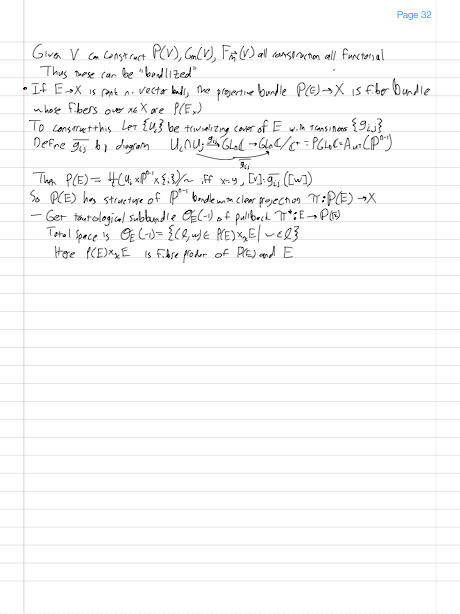 Page 32
Given V can construct P(V), Gm(V), F_m(V) all construction all functorial
Thus these can be "bundlized"
• If E→X is rank n vector bundle, the projective bundle P(E)→X is fiber bundle
whose fibers over x∈X are P(E_x)
To construct this Let {U_i} be trivializing cover of E with transitions {g_ij}
Define \overline{g_ij} by diagram U_i∩U_j →^{g_ij} GL_nℂ → GL_nℂ/ℂ* = PGL_nℂ = Aut(ℙ^{n-1})
\overline{g_ij}
Then P(E) = ∐(U_i × ℙ^{n-1} × {i})/~ iff x=y, [v]=\overline{g_ij}([w])
So P(E) has structure of ℙ^{n-1} bundle with clear projection π: P(E)→X
– Get tautological subbundle O_E(-1) of pullback π*:E→P(E)
Total space is O_E(-1) = {(ℓ,v)∈ P(E)×_x E | v∈ℓ}
Here P(E)×_x E is fibre product of P(E) and E